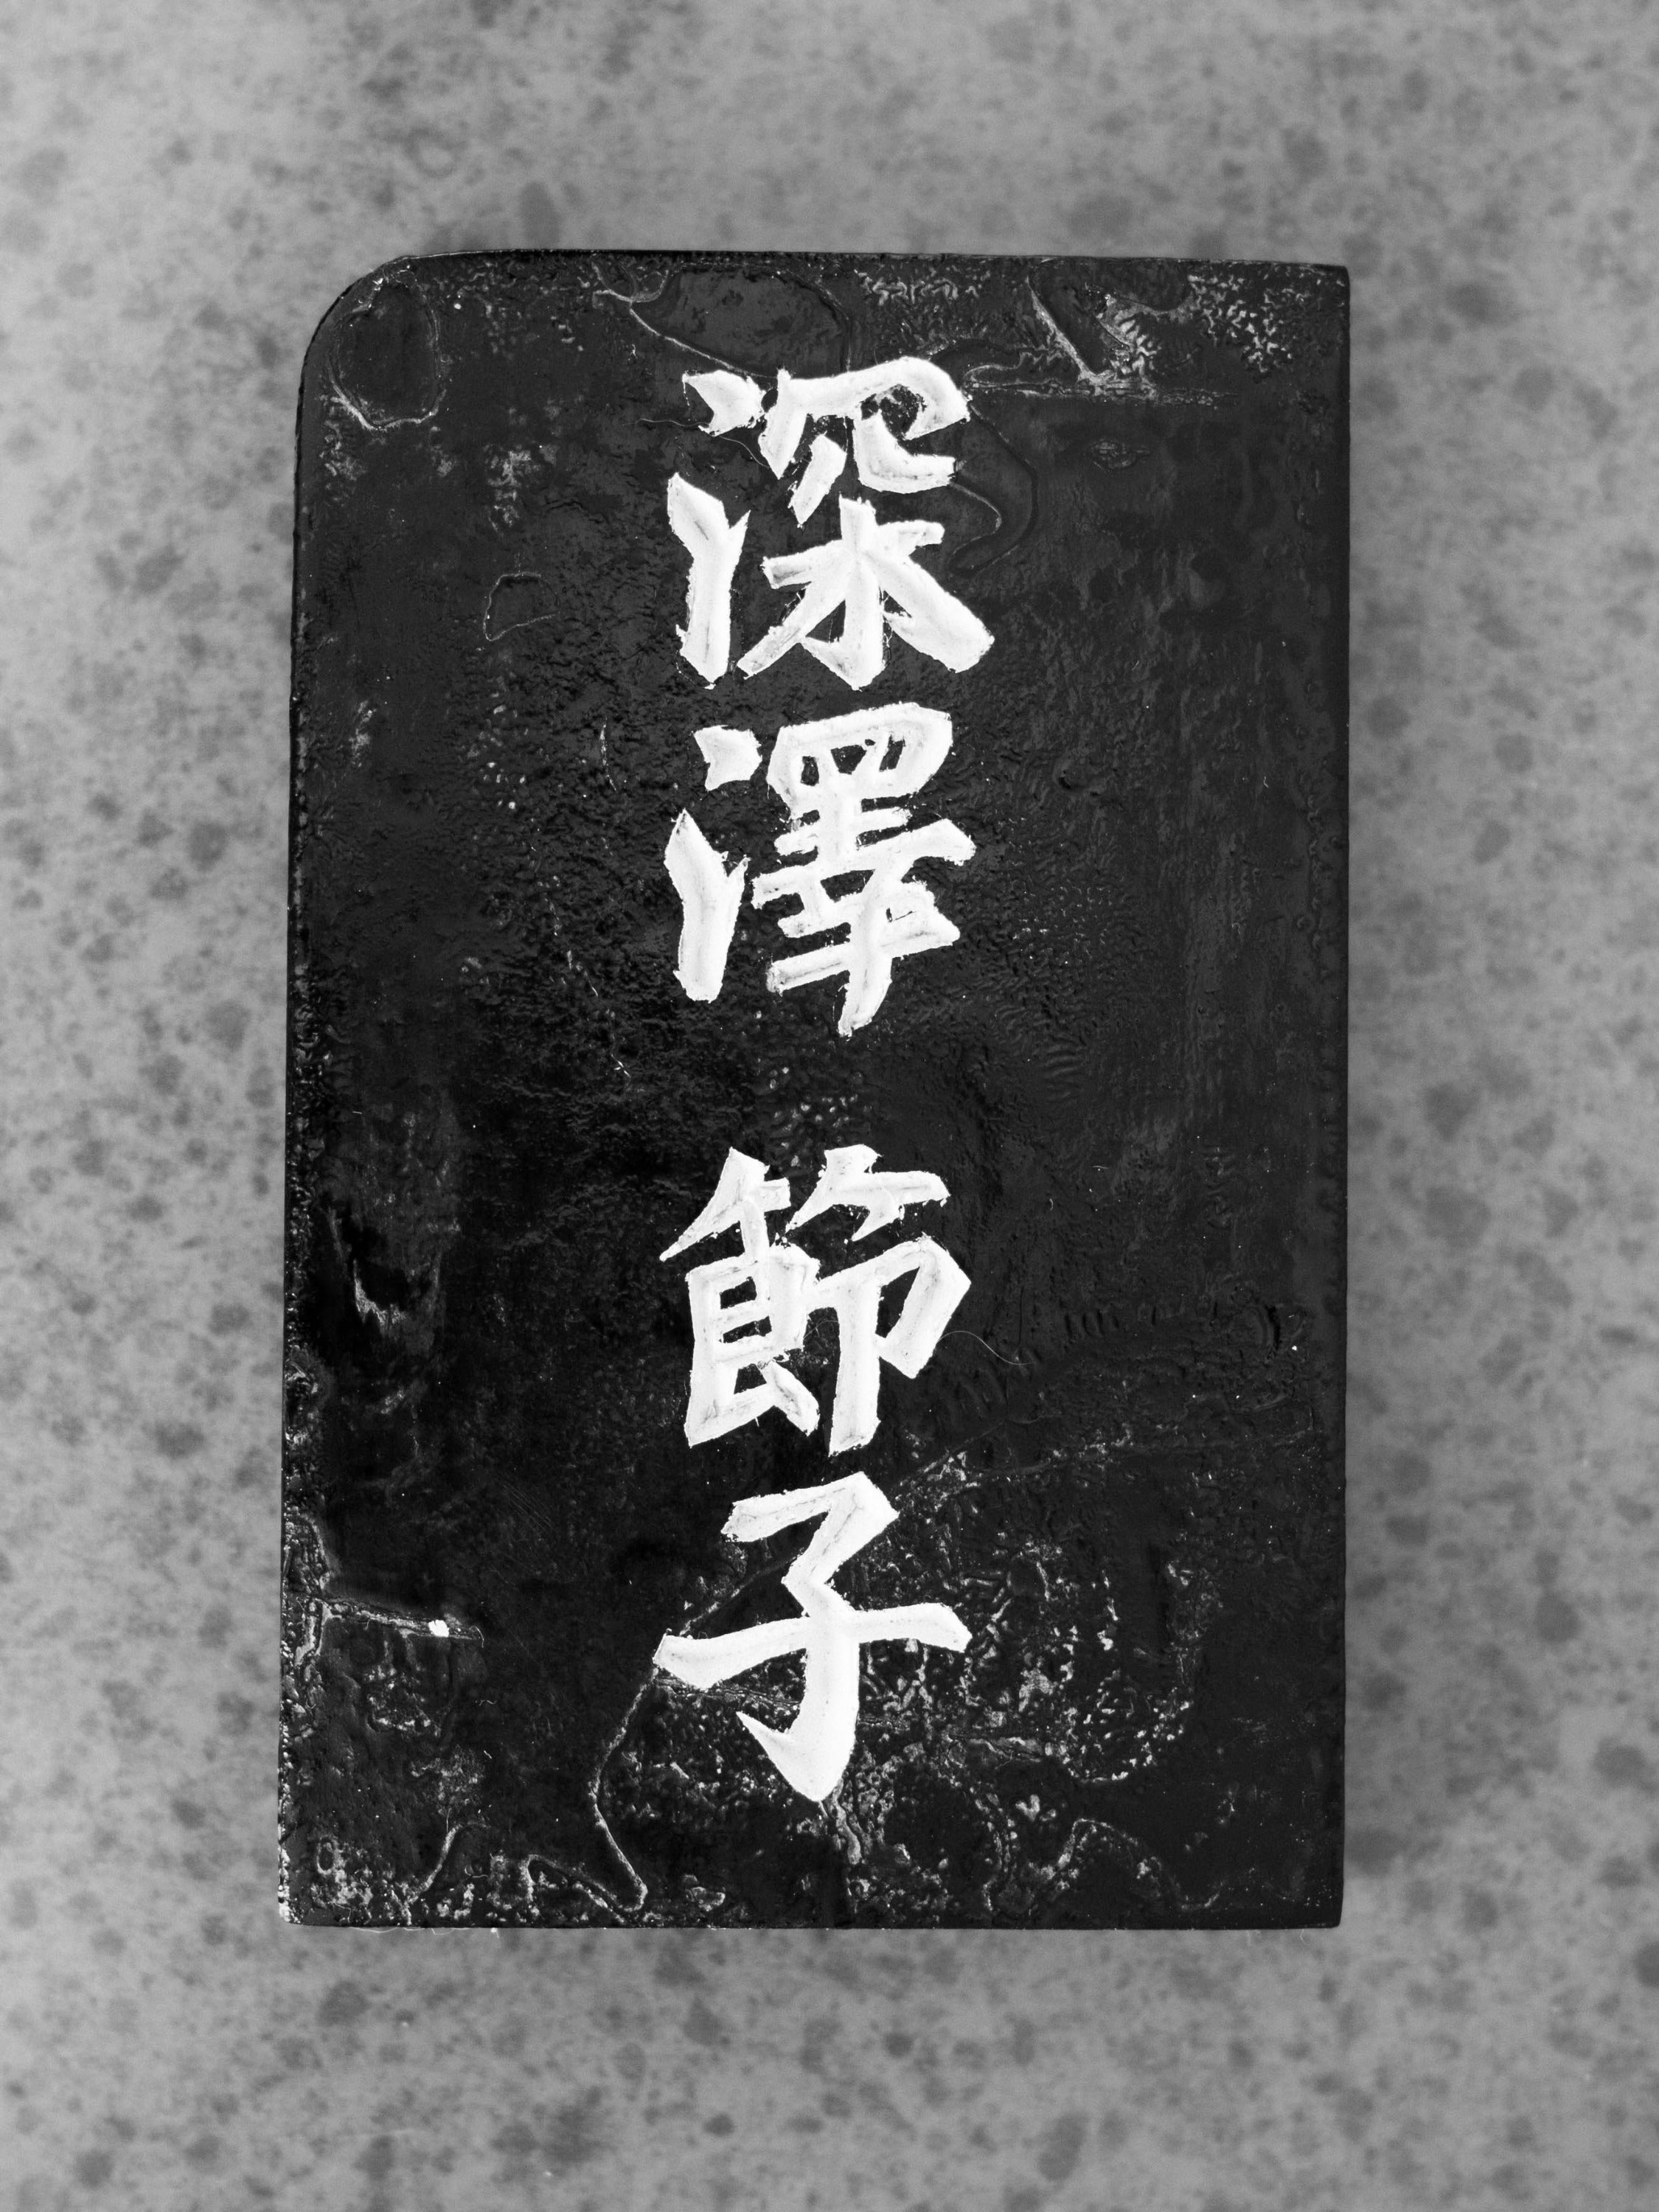 深澤 節子